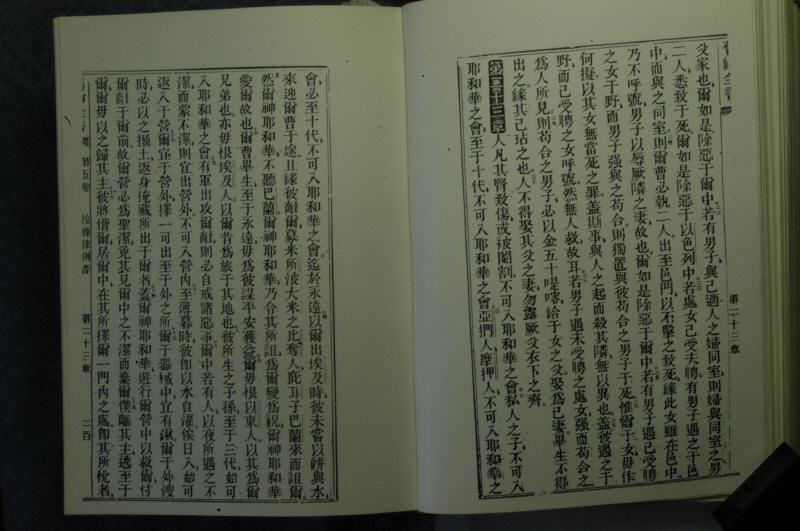 舊約全書
第二十三章
父家也爾如是除惡于爾中若有男子與己適人之婦同室則婦與同室之男
二人悉致于死爾如是除惡于以色列中若處女己受夫聘有男子遇之于邑
中而與之同室則爾曹必執二人出至邑門以石擊之致死緣此女雖在邑中
乃不呼號男子以辱厥隣之妻故也爾如是除惡于爾中若有男子遇己受聘
之女于野而男子强與之苟合則獨置與彼苟合之男子于死惟爾于女毋作
何擬以其女無當死之罪蓋斯事與人之起而殺其隣無以異也蓋彼遇之于
野而己受聘之女呼號然無人救故耳若男子遇未受聘之處女强而苟合之
爲人所見則苟合之男子必以金五十
給于女之父娶爲己妻畢生不得
出之緣其己玷之也人不得娶其父之妻勿露厥父衣下之齊
第二十三章人凡其腎致傷或被閹割不可入耶和華之會私人之子不可入
耶和華之會至于十代不可入耶和華之會亞捫人摩押人不可入耶和華之
會必至十代不可入耶和華之會迄於永遠以爾出埃及時彼未嘗以餅與水
來迎爾曹于途
緣彼敵爾募米所波大米之比奪人庇耳子巴蘭來而詛爾
然爾神耶和華不聽巴蘭爾神耶和華乃令其所詛爲爾變爲祝爾神耶和華
愛爾故也爾曹畢生至于永遠毋爲彼謀平安獲益爾毋恨以東人以其爲爾
兄弟也亦毋恨埃及人以爾昔爲旅于其地也彼所生之子孫至于三代始可
入耶和華之會有軍出攻爾敵則必自戒諸惡事爾中若有人以夜所遇之不
潔而蒙不潔則宜出營外不可入營内至薄暮時彼卽以水自濯俟日入始可
返入于營爾宜于營外擇一可出至于外之所爾于器械中宜有鍬爾于外溲
時必以之掘土返身掩藏所出于爾者蓋爾神耶和華遊行爾營中以救爾付
爾敵于爾前故爾營必爲聖潔免其見爾中之不潔而棄爾僕離其主逃至于
爾爾毋以之歸其主彼將偕爾居爾中在其所擇爾一門内之處卽其所悅者
第五卷
復傳律例書
第二十三章
二百